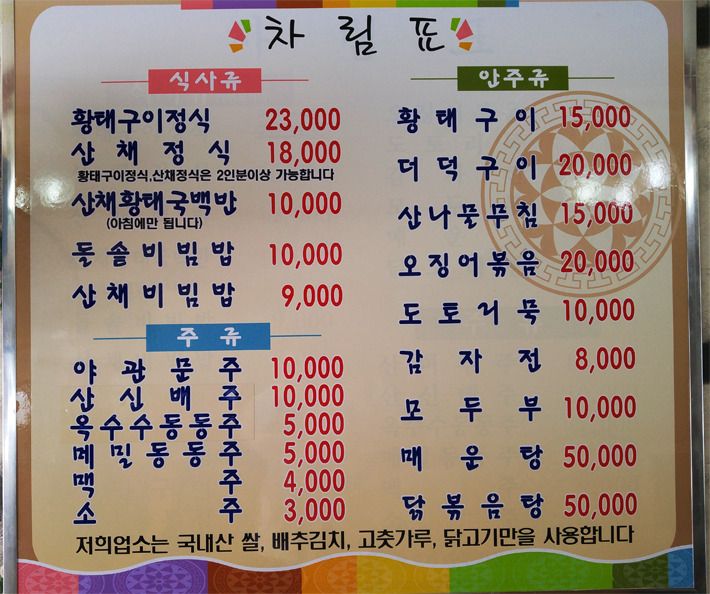 차림표
식사류
황태구이정식 23,000
산채정식 18,000
황태구이정식,산채정식은 2인분이상 가능합니다
산채황태국백반 10,000
(아침에만 됩니다)
돌솥비빔밥 10,000
산채비빔밥 9,000
주류
야관문주 10,000
산신배주 10,000
옥수수동동주 5,000
메밀동동주 5,000
맥주 4,000
소주 3,000
안주류
황태구이 15,000
더덕구이 20,000
산나물무침 15,000
오징어볶음 20,000
도토리묵 10,000
감자전 8,000
모두부 10,000
매운탕 50,000
닭볶음탕 50,000
저희업소는 국내산 쌀, 배추김치, 고춧가루, 닭고기만을 사용합니다